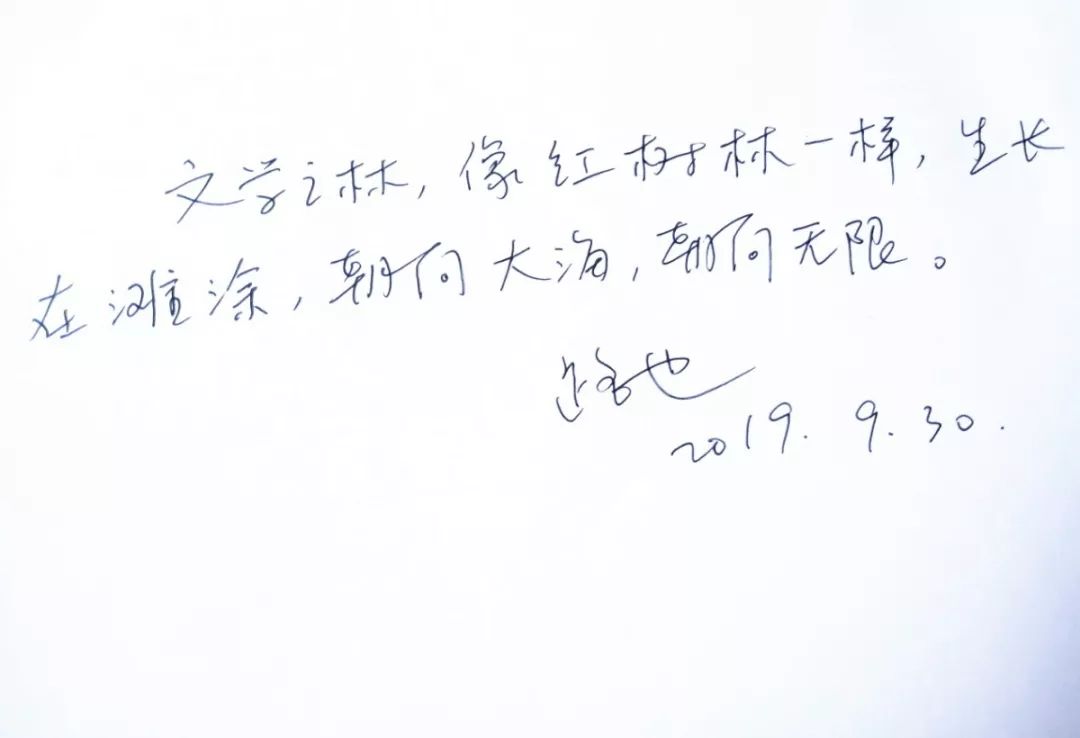 文学之林，像红树林一样，生长
在滩涂，朝向大海，朝向无限。
路也
2019.9.30.